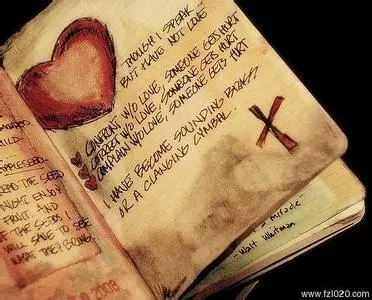 THOUGH I SPEAK
BUT HAVE NOT LOVE
CONFRONT W/O LOVE, SOMEONE GETS HURT
CORRECT W/O LOVE, SOMEONE GETS HURT
COMPLAIN W/O LOVE, SOMEONE GETS HURT
I HAVE BECOME SOUNDING BRASS
OR A CLANGING CYMBAL.
APPLESEED.
READ THE SEED
MIGHT ENJOY
FRUIT AND
THE SEEDS I
WILL SAVE TO SEE
WHAT THEY BRING.
2008
a miracle"
-Walt Whitman
www.fzl020.com